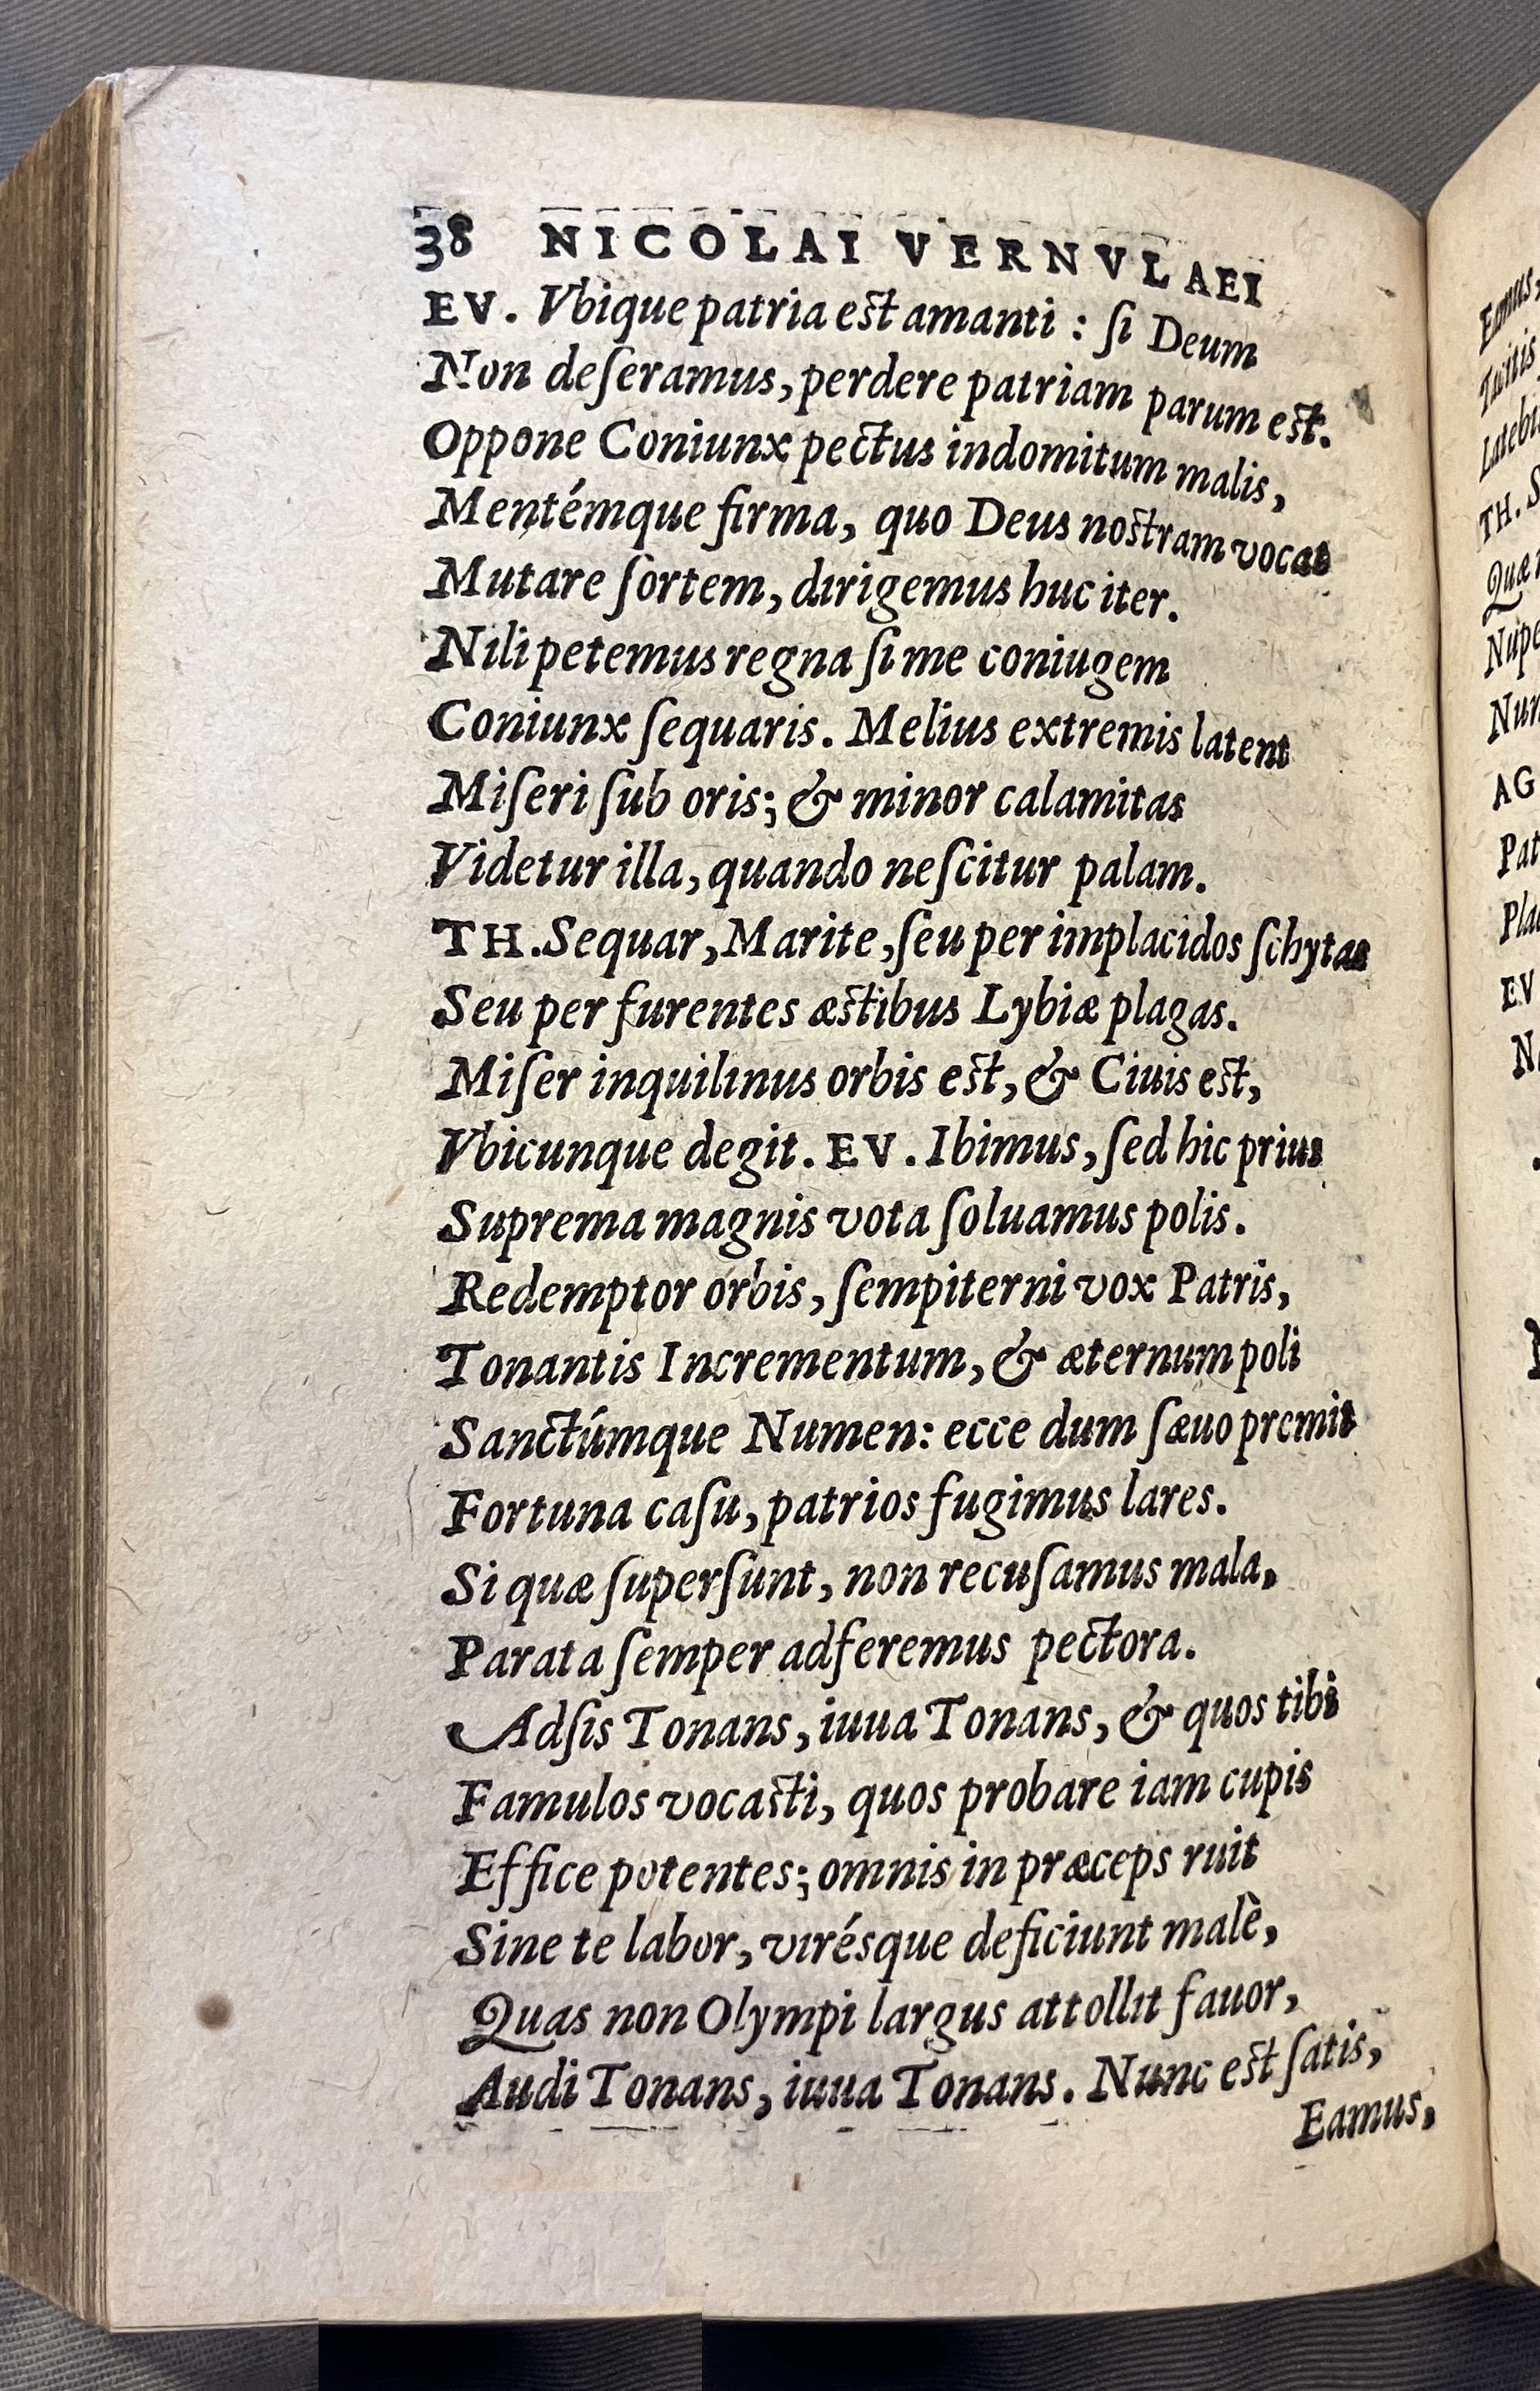 38 NICOLAI VERNVLAEI
EV. Vbique patria est amanti : ſi Deum
Non deſeramus, perdere patriam parum est.
Oppone Coniunx pectus indomitum malis,
Mentémque firma, quo Deus nostram vocat
Mutare ſortem, dirigemus huc iter.
Nili petemus regna ſi me coniugem
Coniunx ſequaris. Melius extremis latent
Miſeri ſub oris; & minor calamitas
Videtur illa, quando neſcitur palam.
TH. Sequar, Marite, ſeu per implacidos ſchytas
Seu per furentes æstibus Lybiæ plagas.
Miſer inquilinus orbis est, & Ciuis est,
Vbicunque degit. EV. Ibimus, ſed hic prius
Suprema magnis vota ſoluamus polis.
Redemptor orbis, ſempiterni vox Patris,
Tonantis Incrementum, & æternum poli
Sanctúmque Numen: ecce dum ſæuo premit
Fortuna caſu, patrios fugimus lares.
Si quæ ſuperſunt, non recuſamus mala,
Parata ſemper adferemus pectora.
Adſis Tonans, iuua Tonans, & quos tibi
Famulos vocasti, quos probare iam cupis
Effice potentes; omnis in præceps ruit
Sine te labor, virésque deficiunt malè,
Quas non Olympi largus attollit fauor,
Audi Tonans, iuua Tonans. Nunc est ſatis,
Eamus,
Eamus,
TH. S
AG
EV
N